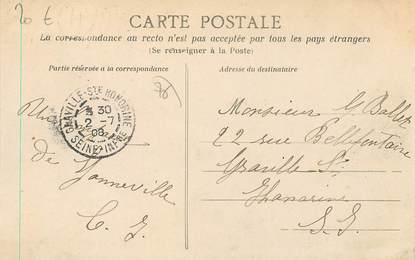 20 €
CARTE POSTALE
La correspondance au recto n'est pas acceptée par tous les pays étrangers
(Se renseigner à la Poste)
Partie réservée a la correspondance
Adresse du destinataire
GRAVILLE-STE HONORINE
3 30
2 - 7
08
SEINE-INFRE
de Sanneville
C. J.
Monsieur G. Ballet
22 rue Bellefontaine
Graville Ste
Honorine
S. I.